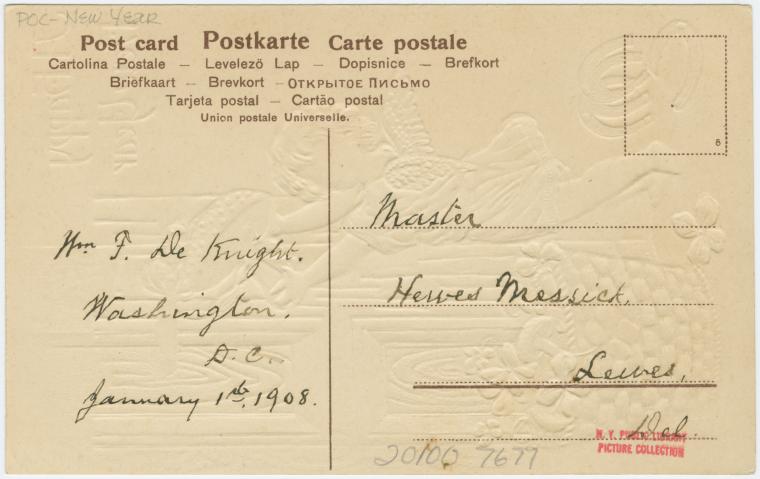 POC-NEW YEAR
Post card Postkarte Carte postale
Cartolina Postale — Levelező Lap — Dopisnice — Brefkort
Briefkaart — Brevkort — ОТКРЫТОЕ ПИСЬМО
Tarjeta postal — Cartão postal
Union postale Universelle.
8
Wm F. De Knight.
Washington.
D.C.
January 1st, 1908.
Master
Hewes Messick,
Lewes,
Del.
N. Y. PUBLIC LIBRARY
PICTURE COLLECTION
20100 7677